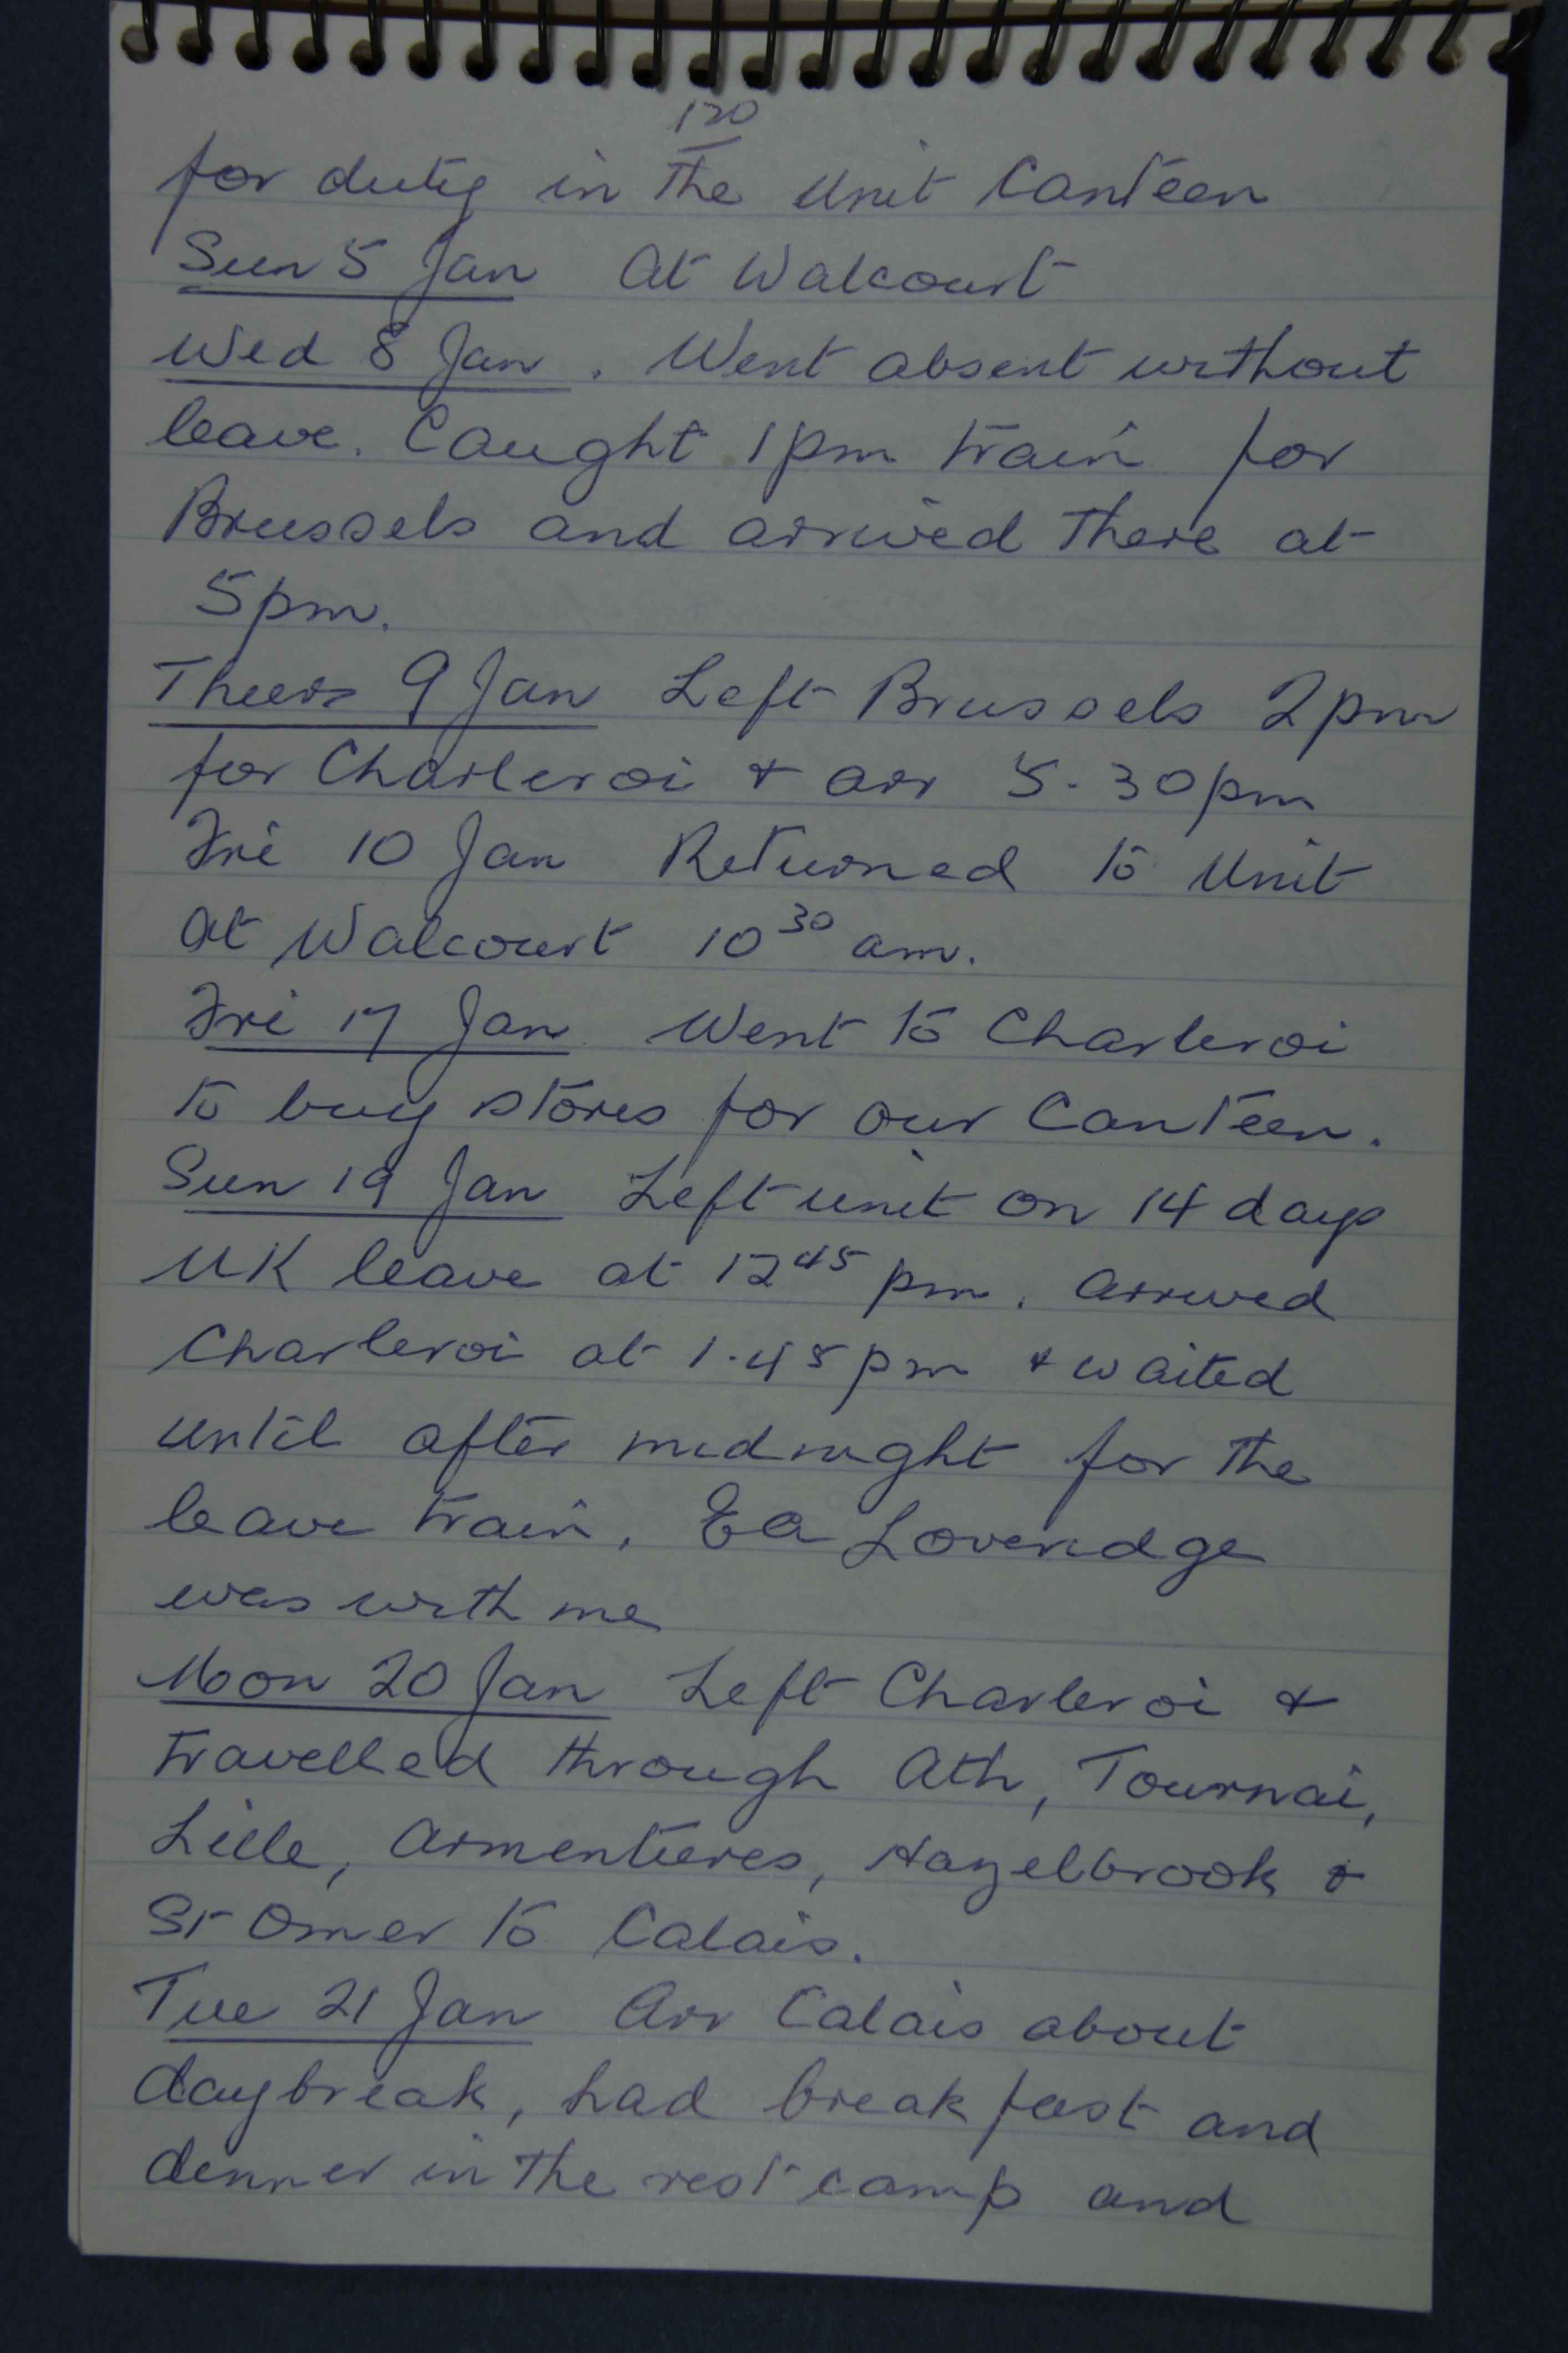 120
for duty in the Unit Canteen
Sun 5 Jan At Walcourt
Wed 8 Jan. Went absent without
leave. Caught 1pm train for
Brussels and arrived there at
5pm.
Thurs 9 Jan Left Brussels 2pm
for Charleroi & arr 5.30pm
Fri 10 Jan Returned to Unit
at Walcourt 10 30 am.
Fri 17 Jan Went to Charleroi
to buy stores for our Canteen.
Sun 19 Jan Left unit on 14 days
UK leave at 12 45 pm. Arrived
Charleroi at 1.45pm & waited
until after midnight for the
leave train. Loveridge
was with me
Mon 20 Jan Left Charleroi &
travelled through Ath, Tournai,
Lille, Armentieres, Hazelbrook &
St Omer to Calais.
Tue 21 Jan Arr Calais about
daybreak, had breakfast and
dinner in the rest camp and